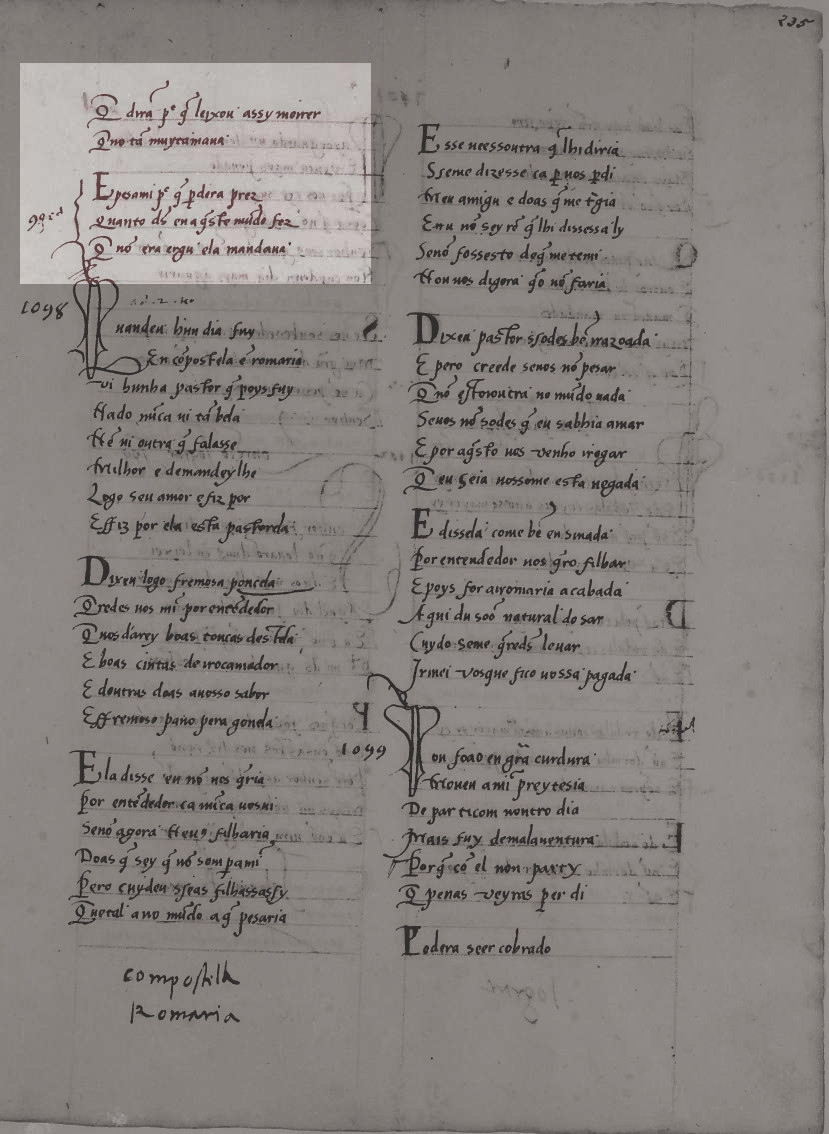 235
Q̄ dirā pᵉ q̄ leixou assy morrer
Q̄no tā muytamaua
E pesami pᵉ q̄ perdera prez
Quanto ds̄ en aq̄ste mūdo fez
Q̄ nō era ergu ela mandaua
1098
uandeu hun dia fuy
En cōpostela ē romaria
Vi hunha pastor q̄ poys fuy
Nado nūca ui tā bela
Nē ui outra q̄ falasse
Milhor e demandeylhe
Logo seu amor efiz por
Effiz por ela esta pastorela
Dixeu logo fremosa poncela
Q̄redes uos mī por entēdedor
Q̄uos darey boas toucas destela
E boas cintas de rrocamador
E doutras doas auosso sabor
Effremoso pano pera gonela
Ela disse eu nō uos q̄ria
Por entēdedor ca nūca uosui
Senō agora neuꝯ filharia
Doas q̄ sey q̄ nō som pami
Pero cuydeu sseas filhassassy
Que tal a no mūdo a q̄ pesaria
compostella
Romaria
E sse ueessoutra q̄ lhi diria
Sseme dizesse ca per uos perdi
Meu amigu e doas q̄ me tragia
Eu nō sey rē q̄ lhi dissessaly
Senō fossesto deq̄ me temi
Non uos digora q̄o nō faria
Dixeu pastor ssodes bē rrazoada
E pero creede seuos nō pesar
Q̄ nō estoutra no mūdo nada
Seuos nō sodes q̄ eu sabbia amar
E por aq̄sto uos venho rrogar
Q̄ eu seia uossome esta uegada
E dissela come bē ensinada
Por entendedor uos q̄ro filhar
E poys for arromaria acabada
Aqui du soō natural do sar
Cuydo seme q̄reds leuar
Irmei vosque fico uossa pagada
1099
on foao en grā curdura
Moueu ami preytesia
De particom noutro dia
Mais fuy demalauentura
Porq̄ cō el non party
Q̄ penas veyras per di
Podera seer cobrado